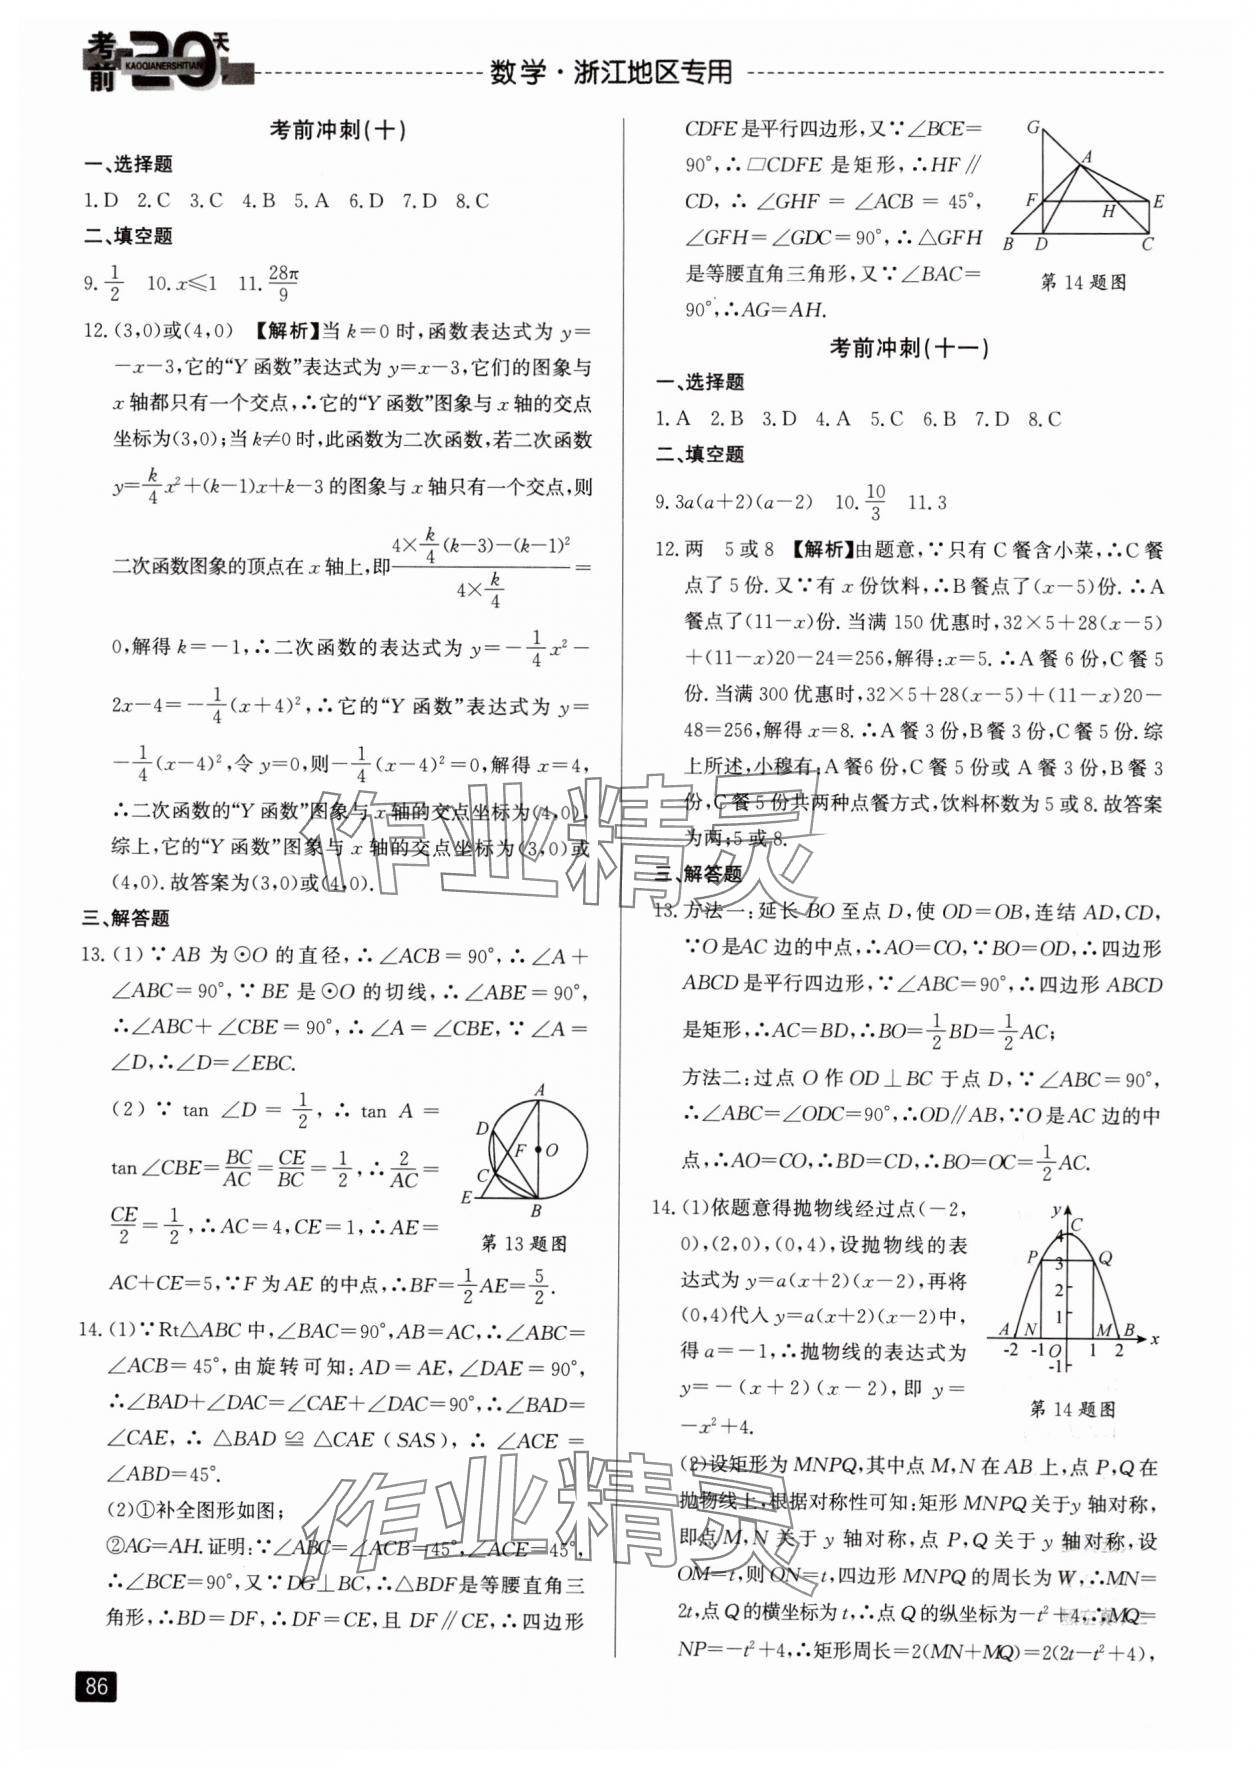 考前20天
KAOQIANERSHITIAN
数学·浙江地区专用
考前冲刺(十)
一、选择题
1. D 2. C 3. C 4. B 5. A 6. D 7. D 8. C
二、填空题
9. 1/2 10. x≤1 11. 28π/9
12. (3,0)或(4,0) 【解析】当 k=0 时,函数表达式为 y=
-x-3,它的“Y 函数”表达式为 y=x-3,它们的图象与
x 轴都只有一个交点,∴它的“Y 函数”图象与 x 轴的交点
坐标为(3,0);当 k≠0 时,此函数为二次函数,若二次函数
y=k/4 x²+(k-1)x+k-3 的图象与 x 轴只有一个交点,则
二次函数图象的顶点在 x 轴上,即 (4×k/4(k-3)-(k-1)²)/(4×k/4)=
0,解得 k=-1,∴二次函数的表达式为 y=-1/4 x²-
2x-4=-1/4(x+4)²,∴它的“Y 函数”表达式为 y=
-1/4(x-4)²,令 y=0,则-1/4(x-4)²=0,解得 x=4,
∴二次函数的“Y 函数”图象与 x 轴的交点坐标为(4,0),
综上,它的“Y 函数”图象与 x 轴的交点坐标为(3,0)或
(4,0).故答案为(3,0)或(4,0).
三、解答题
13. (1)∵AB 为⊙O 的直径,∴∠ACB=90°,∴∠A+
∠ABC=90°,∵BE 是⊙O 的切线,∴∠ABE=90°,
∴∠ABC+∠CBE=90°,∴∠A=∠CBE,∵∠A=
∠D,∴∠D=∠EBC.
(2)∵tan ∠D=1/2,∴tan A=
tan∠CBE=BC/AC=CE/BC=1/2,∴2/AC=
CE/2=1/2,∴AC=4,CE=1,∴AE=
A
D
F
O
C
E
B
第 13 题图
AC+CE=5,∵F 为 AE 的中点,∴BF=1/2 AE=5/2.
14. (1)∵Rt△ABC 中,∠BAC=90°,AB=AC,∴∠ABC=
∠ACB=45°,由旋转可知:AD=AE,∠DAE=90°,
∴∠BAD+∠DAC=∠CAE+∠DAC=90°,∴∠BAD=
∠CAE,∴△BAD≌△CAE(SAS),∴∠ACE=
∠ABD=45°.
(2)①补全图形如图;
②AG=AH.证明:∵∠ABC=∠ACB=45°,∠ACE=45°,
∴∠BCE=90°,又∵DG⊥BC,∴△BDF是等腰直角三
角形,∴BD=DF,∴DF=CE,且 DF∥CE,∴四边形
86
CDFE是平行四边形,又∵∠BCE=
90°,∴□CDFE 是矩形,∴HF∥
CD,∴∠GHF=∠ACB=45°,
∠GFH=∠GDC=90°,∴△GFH
是等腰直角三角形,又∵∠BAC=
90°,∴AG=AH.
G
A
F
H
E
B
D
C
第 14 题图
考前冲刺(十一)
一、选择题
1. A 2. B 3. D 4. A 5. C 6. B 7. D 8. C
二、填空题
9. 3a(a+2)(a-2) 10. 10/3 11. 3
12. 两 5 或 8 【解析】由题意,∵只有 C 餐含小菜,∴C 餐
点了 5 份.又∵有 x 份饮料,∴B 餐点了(x-5)份.∴A
餐点了(11-x)份.当满 150 优惠时,32×5+28(x-5)
+(11-x)20-24=256,解得:x=5.∴A 餐 6 份,C 餐 5
份.当满 300 优惠时,32×5+28(x-5)+(11-x)20-
48=256,解得 x=8.∴A 餐 3 份,B 餐 3 份,C 餐 5 份.综
上所述,小穆有:A 餐6 份,C 餐 5 份或 A 餐 3 份,B 餐 3
份,C 餐 5 份共两种点餐方式,饮料杯数为 5 或 8.故答案
为两;5 或 8.
三、解答题
13. 方法一:延长 BO 至点 D,使 OD=OB,连结 AD,CD,
∵O是AC 边的中点,∴AO=CO,∵BO=OD,∴四边形
ABCD 是平行四边形,∵∠ABC=90°,∴四边形 ABCD
是矩形,∴AC=BD,∴BO=1/2 BD=1/2 AC;
方法二:过点 O 作 OD⊥BC 于点 D,∵∠ABC=90°,
∴∠ABC=∠ODC=90°,∴OD∥AB,∵O是AC 边的中
点,∴AO=CO,∴BD=CD,∴BO=OC=1/2 AC.
14. (1)依题意得抛物线经过点(-2,
0),(2,0),(0,4),设抛物线的表
达式为 y=a(x+2)(x-2),再将
(0,4)代入 y=a(x+2)(x-2)中,
得 a=-1,∴抛物线的表达式为
y=-(x+2)(x-2),即 y=
-x²+4.
y
C
4
P
3
Q
2
1
A
N
M
B
x
-2
-1
O
1
2
-1
第 14 题图
(2)设矩形为 MNPQ,其中点 M,N 在 AB 上,点 P,Q 在
抛物线上,根据对称性可知:矩形 MNPQ 关于y 轴对称,
即点 M,N 关于 y 轴对称,点 P,Q 关于 y 轴对称,设
OM=t,则 ON=t,四边形 MNPQ 的周长为 W,∴MN=
2t,点 Q 的横坐标为 t,∴点 Q 的纵坐标为-t²+4,∴MQ=
NP=-t²+4,∴矩形周长=2(MN+MQ)=2(2t-t²+4),
作业精灵
作业精灵